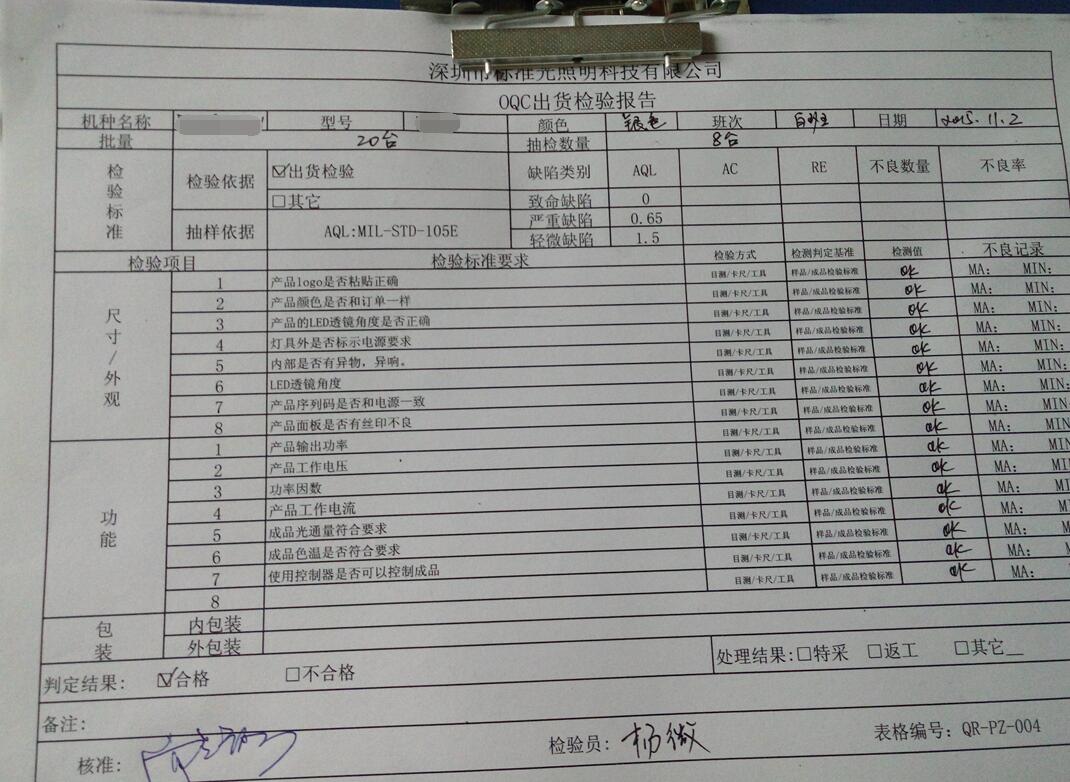 深圳市标准光照明科技有限公司
OQC出货检验报告
机种名称 型号 颜色 银色 班次 日期 2015.11.2
批量 20台 抽检数量 8台
检验标准 检验依据 ☑出货检验 缺陷类别 AQL AC RE 不良数量 不良率
□其它 致命缺陷 0
抽样依据 AQL:MIL-STD-105E 严重缺陷 0.65
轻微缺陷 1.5
检验项目 检验标准要求 检验方式 检测判定基准 检测值 不良记录
尺寸/外观
1 产品logo是否粘贴正确 目测/卡尺/工具 样品/成品检验标准 OK MA: MIN:
2 产品颜色是否和订单一样 目测/卡尺/工具 样品/成品检验标准 OK MA: MIN:
3 产品的LED透镜角度是否正确 目测/卡尺/工具 样品/成品检验标准 OK MA: MIN:
4 灯具外是否标示电源要求 目测/卡尺/工具 样品/成品检验标准 OK MA: MIN:
5 内部是否有异物，异响。 目测/卡尺/工具 样品/成品检验标准 OK MA: MIN:
6 LED透镜角度 目测/卡尺/工具 样品/成品检验标准 OK MA: MIN:
7 产品序列码是否和电源一致 目测/卡尺/工具 样品/成品检验标准 OK MA: MIN:
8 产品面板是否有丝印不良 目测/卡尺/工具 样品/成品检验标准 OK MA: MIN
功能
1 产品输出功率 目测/卡尺/工具 样品/成品检验标准 OK MA: MIN
2 产品工作电压 目测/卡尺/工具 样品/成品检验标准 OK MA: MIN
3 功率因数 目测/卡尺/工具 样品/成品检验标准 OK MA: MI
4 产品工作电流 目测/卡尺/工具 样品/成品检验标准 OK MA: MI
5 成品光通量符合要求 目测/卡尺/工具 样品/成品检验标准 OK MA: M
6 成品色温是否符合要求 目测/卡尺/工具 样品/成品检验标准 OK MA: M
7 使用控制器是否可以控制成品 目测/卡尺/工具 样品/成品检验标准 OK MA:
8
包装 内包装
外包装
判定结果: ☑合格 □不合格 处理结果:□特采 □返工 □其它__
备注:
核准: 检验员: 杨微 表格编号: QR-PZ-004